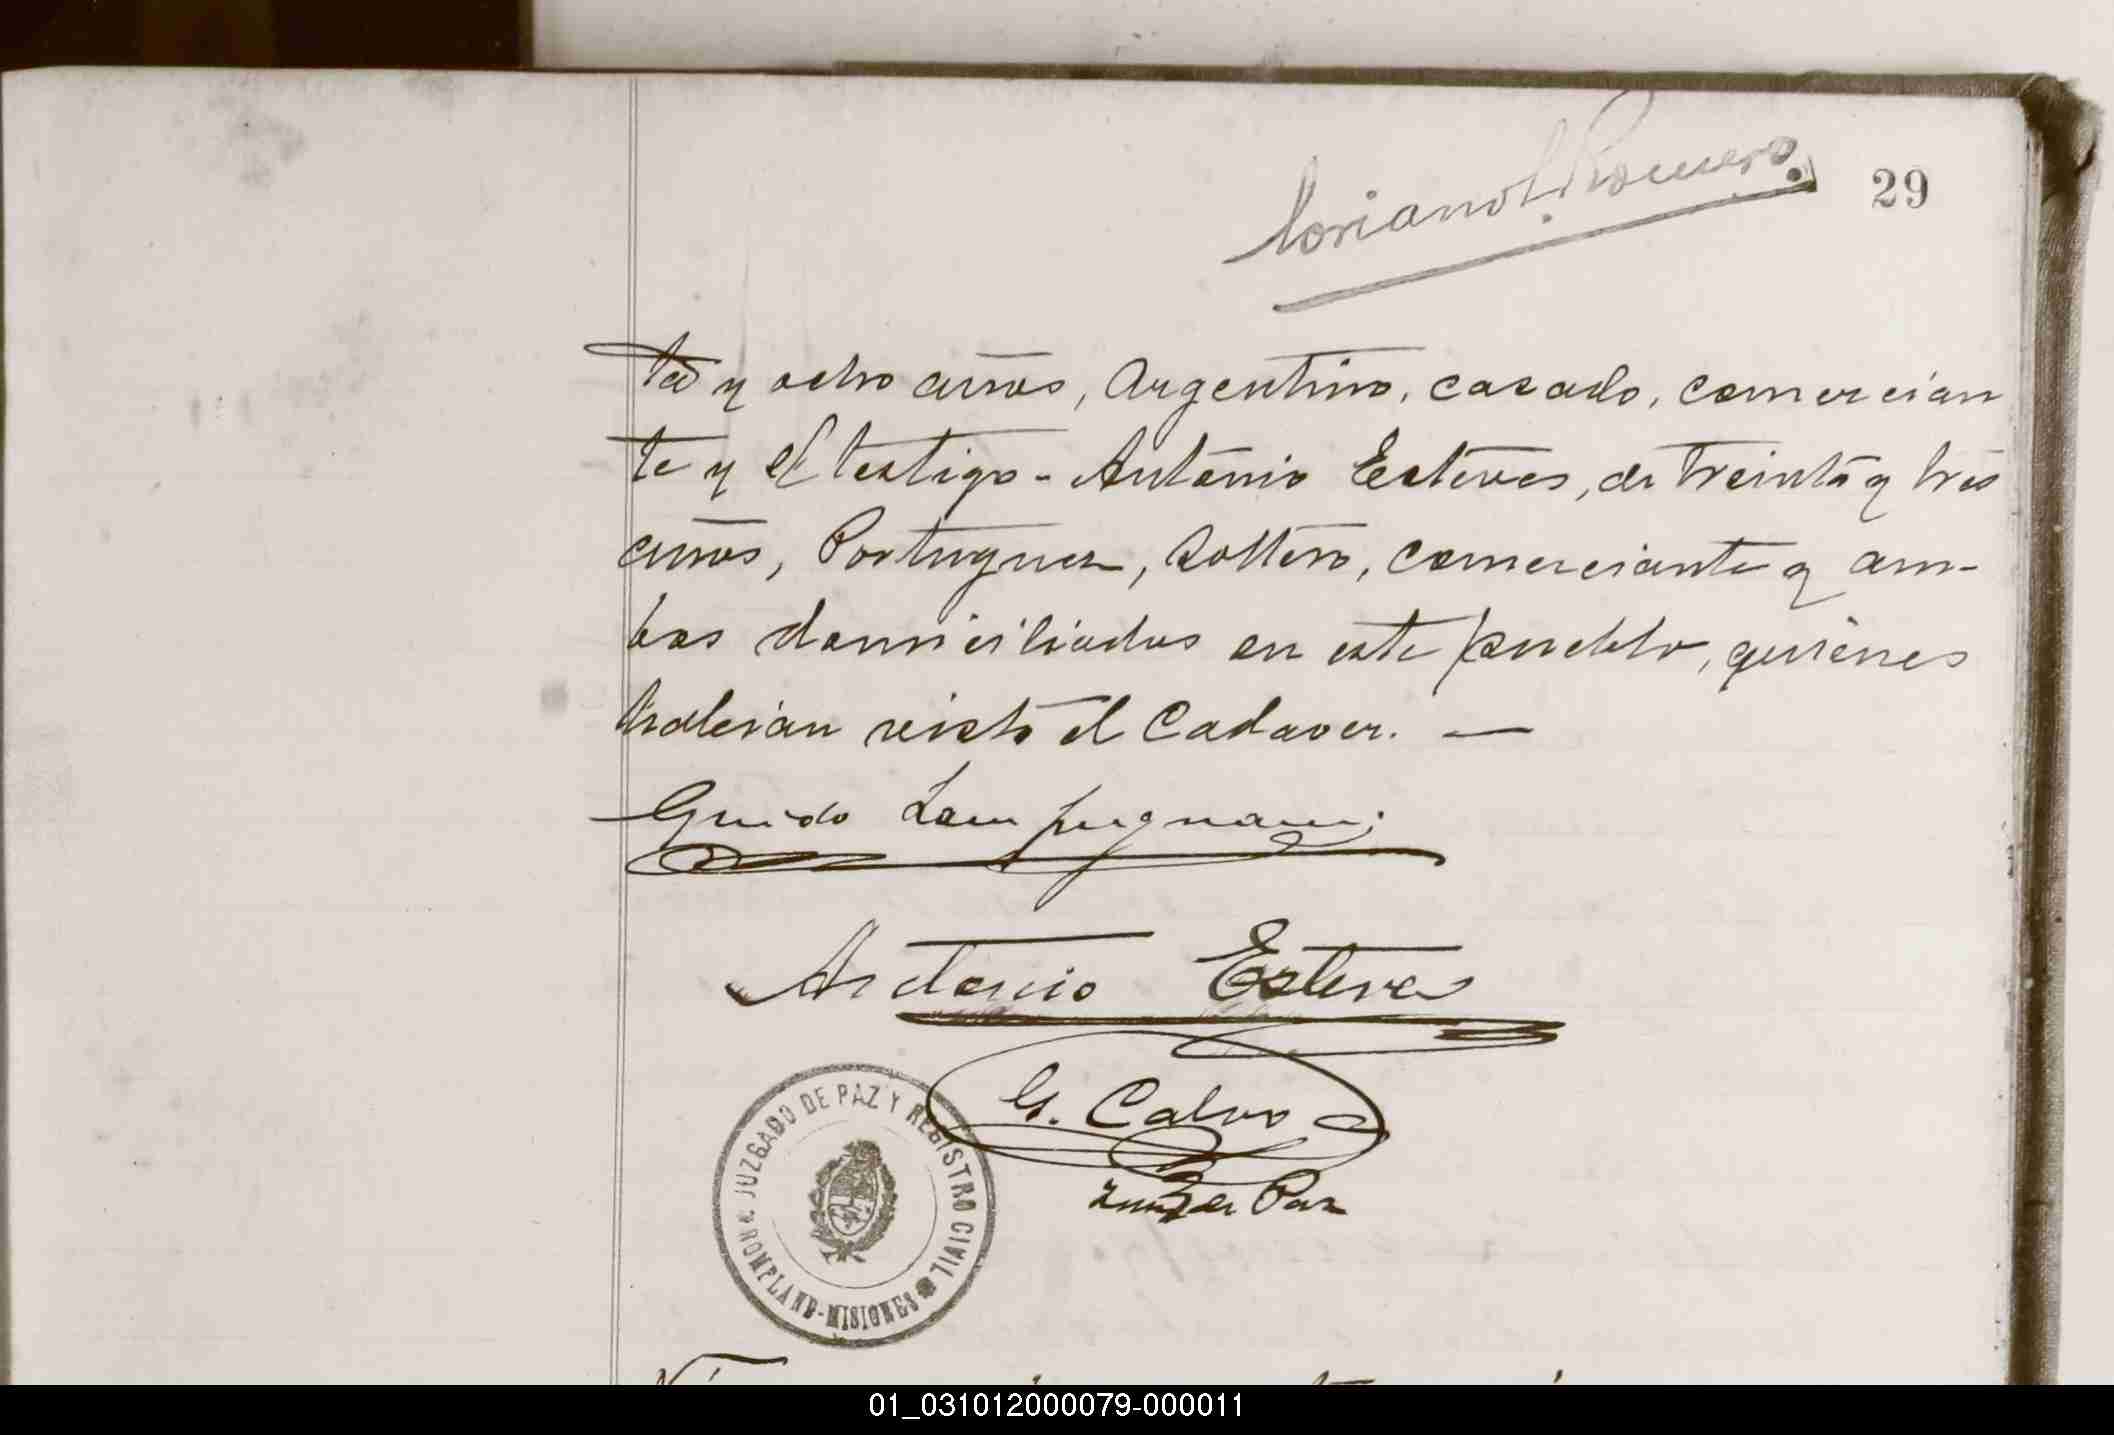 Loriano L. Romero.
29
ta y ocho años, Argentino, casado, comercian
te y el testigo - Antonio Esteves, de treinta y tres
años, Portugues, soltero, comerciante y am-
bos domiciliados en este pueblo, quienes
habian visto el Cadaver. —
Guido Lampugnani
Antonio Esteves
G. Calvo
Juez de Paz
JUZGADO DE PAZ Y REGISTRO CIVIL
BOMPLAND-MISIONES
01_031012000079-000011